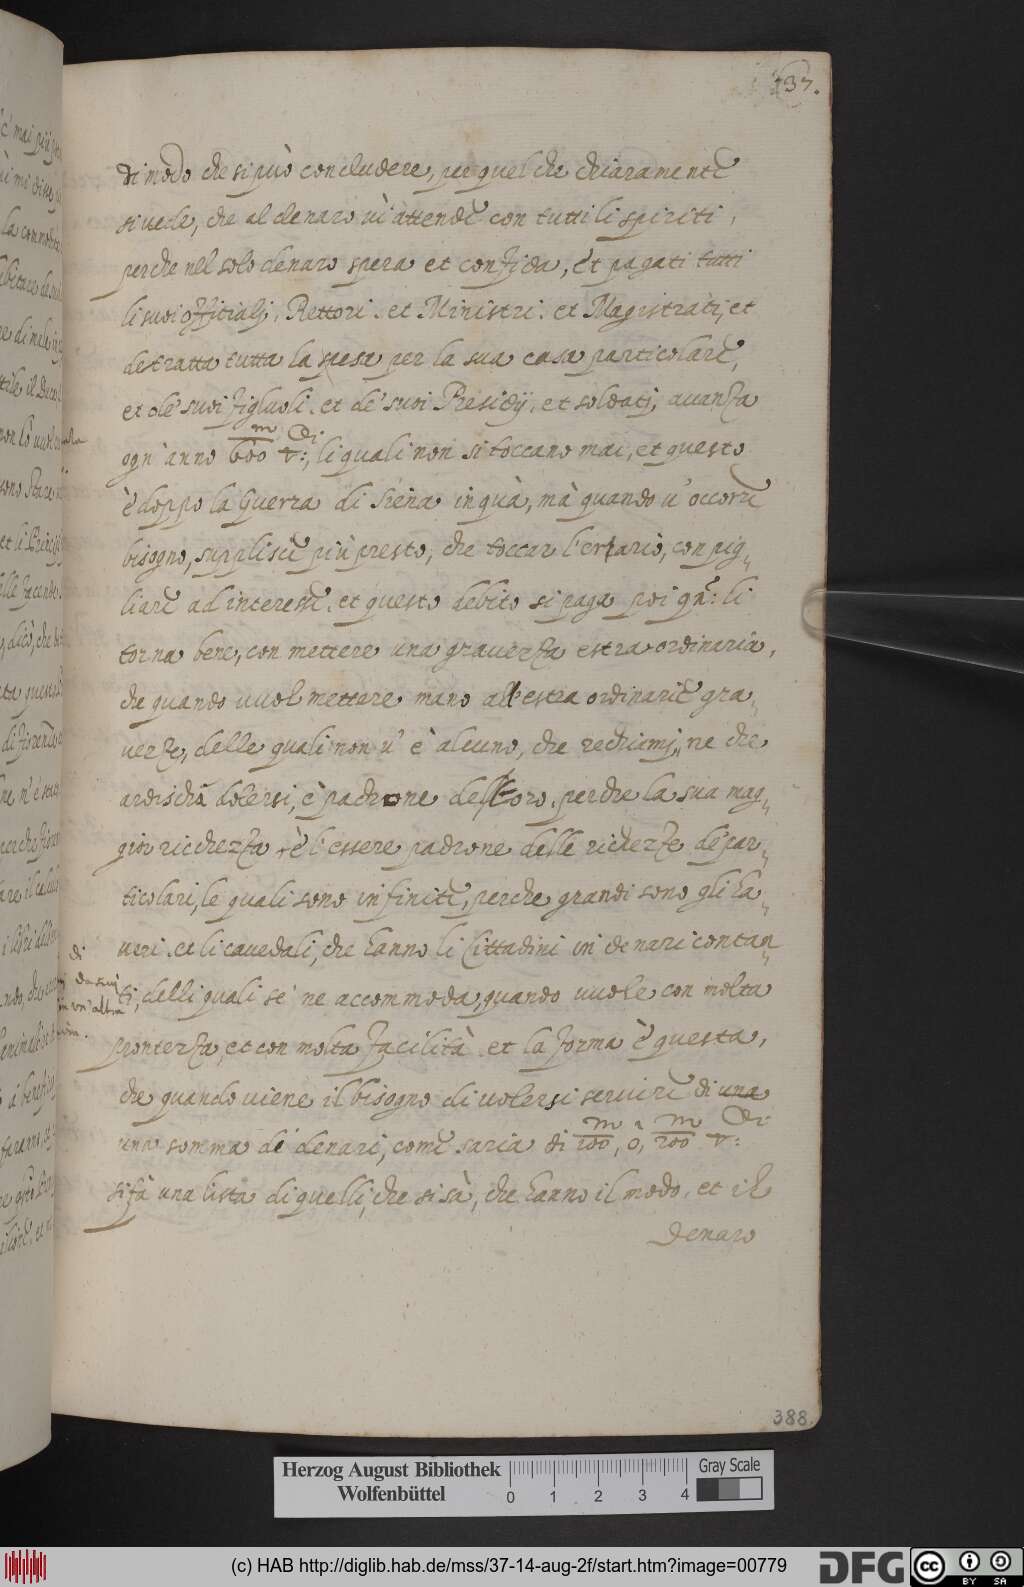 137.
di modo che si può concludere, per quel che chiaramente
si vede, che al denaro vi attende con tutti li spiriti,
perche nel solo denaro spera et confida, et pagati tutti
li suoi offitiali, Rettori. et Ministri. et Magistrati, et
detratta tutta la spesa per la sua casa particolare,
et de' suoi figluoli. et de' suoi Presidij. et soldati, avanza
ogn' anno 600 m di v:, li quali non si toccano mai, et questo
è doppo la Guerra di Siena in quà, mà quando v' occorre
bisogno, supplisce più presto, che toccar l'errario, con pig-
liare ad interesse. et questo debito si paga poi qñ: li
torna bene, con mettere una gravezza estraordinaria,
che quando vuol mettere mano all' estra ordinarie gra-
vezze, delle quali non v' è alcuno, che rechiami, ne che
ardischa dolersi, è padrone dell'oro, perche la sua mag-
gior ricchezza è l'essere padrone delle richezze de par-
ticolari, le quali sono infinite, perche grandi sono gli ha-
veri. et li cavedali, che hanno li Cittadini in denari contan-
ti, delli quali se ne accommoda, quando vuole con molta
prontezza, et con molta facilità. et la forma è questa,
che quando viene il bisogno di volersi servire di una
una somma de denari, come saria di 100 m, o, 200 m di v:
si fà una lista di quelli, che si sà, che hanno il modo. et il
denaro
388.
Herzog August Bibliothek
Wolfenbüttel
0 1 2 3 4
Gray Scale
(c) HAB http://diglib.hab.de/mss/37-14-aug-2f/start.htm?image=00779
DFG
cc BY SA